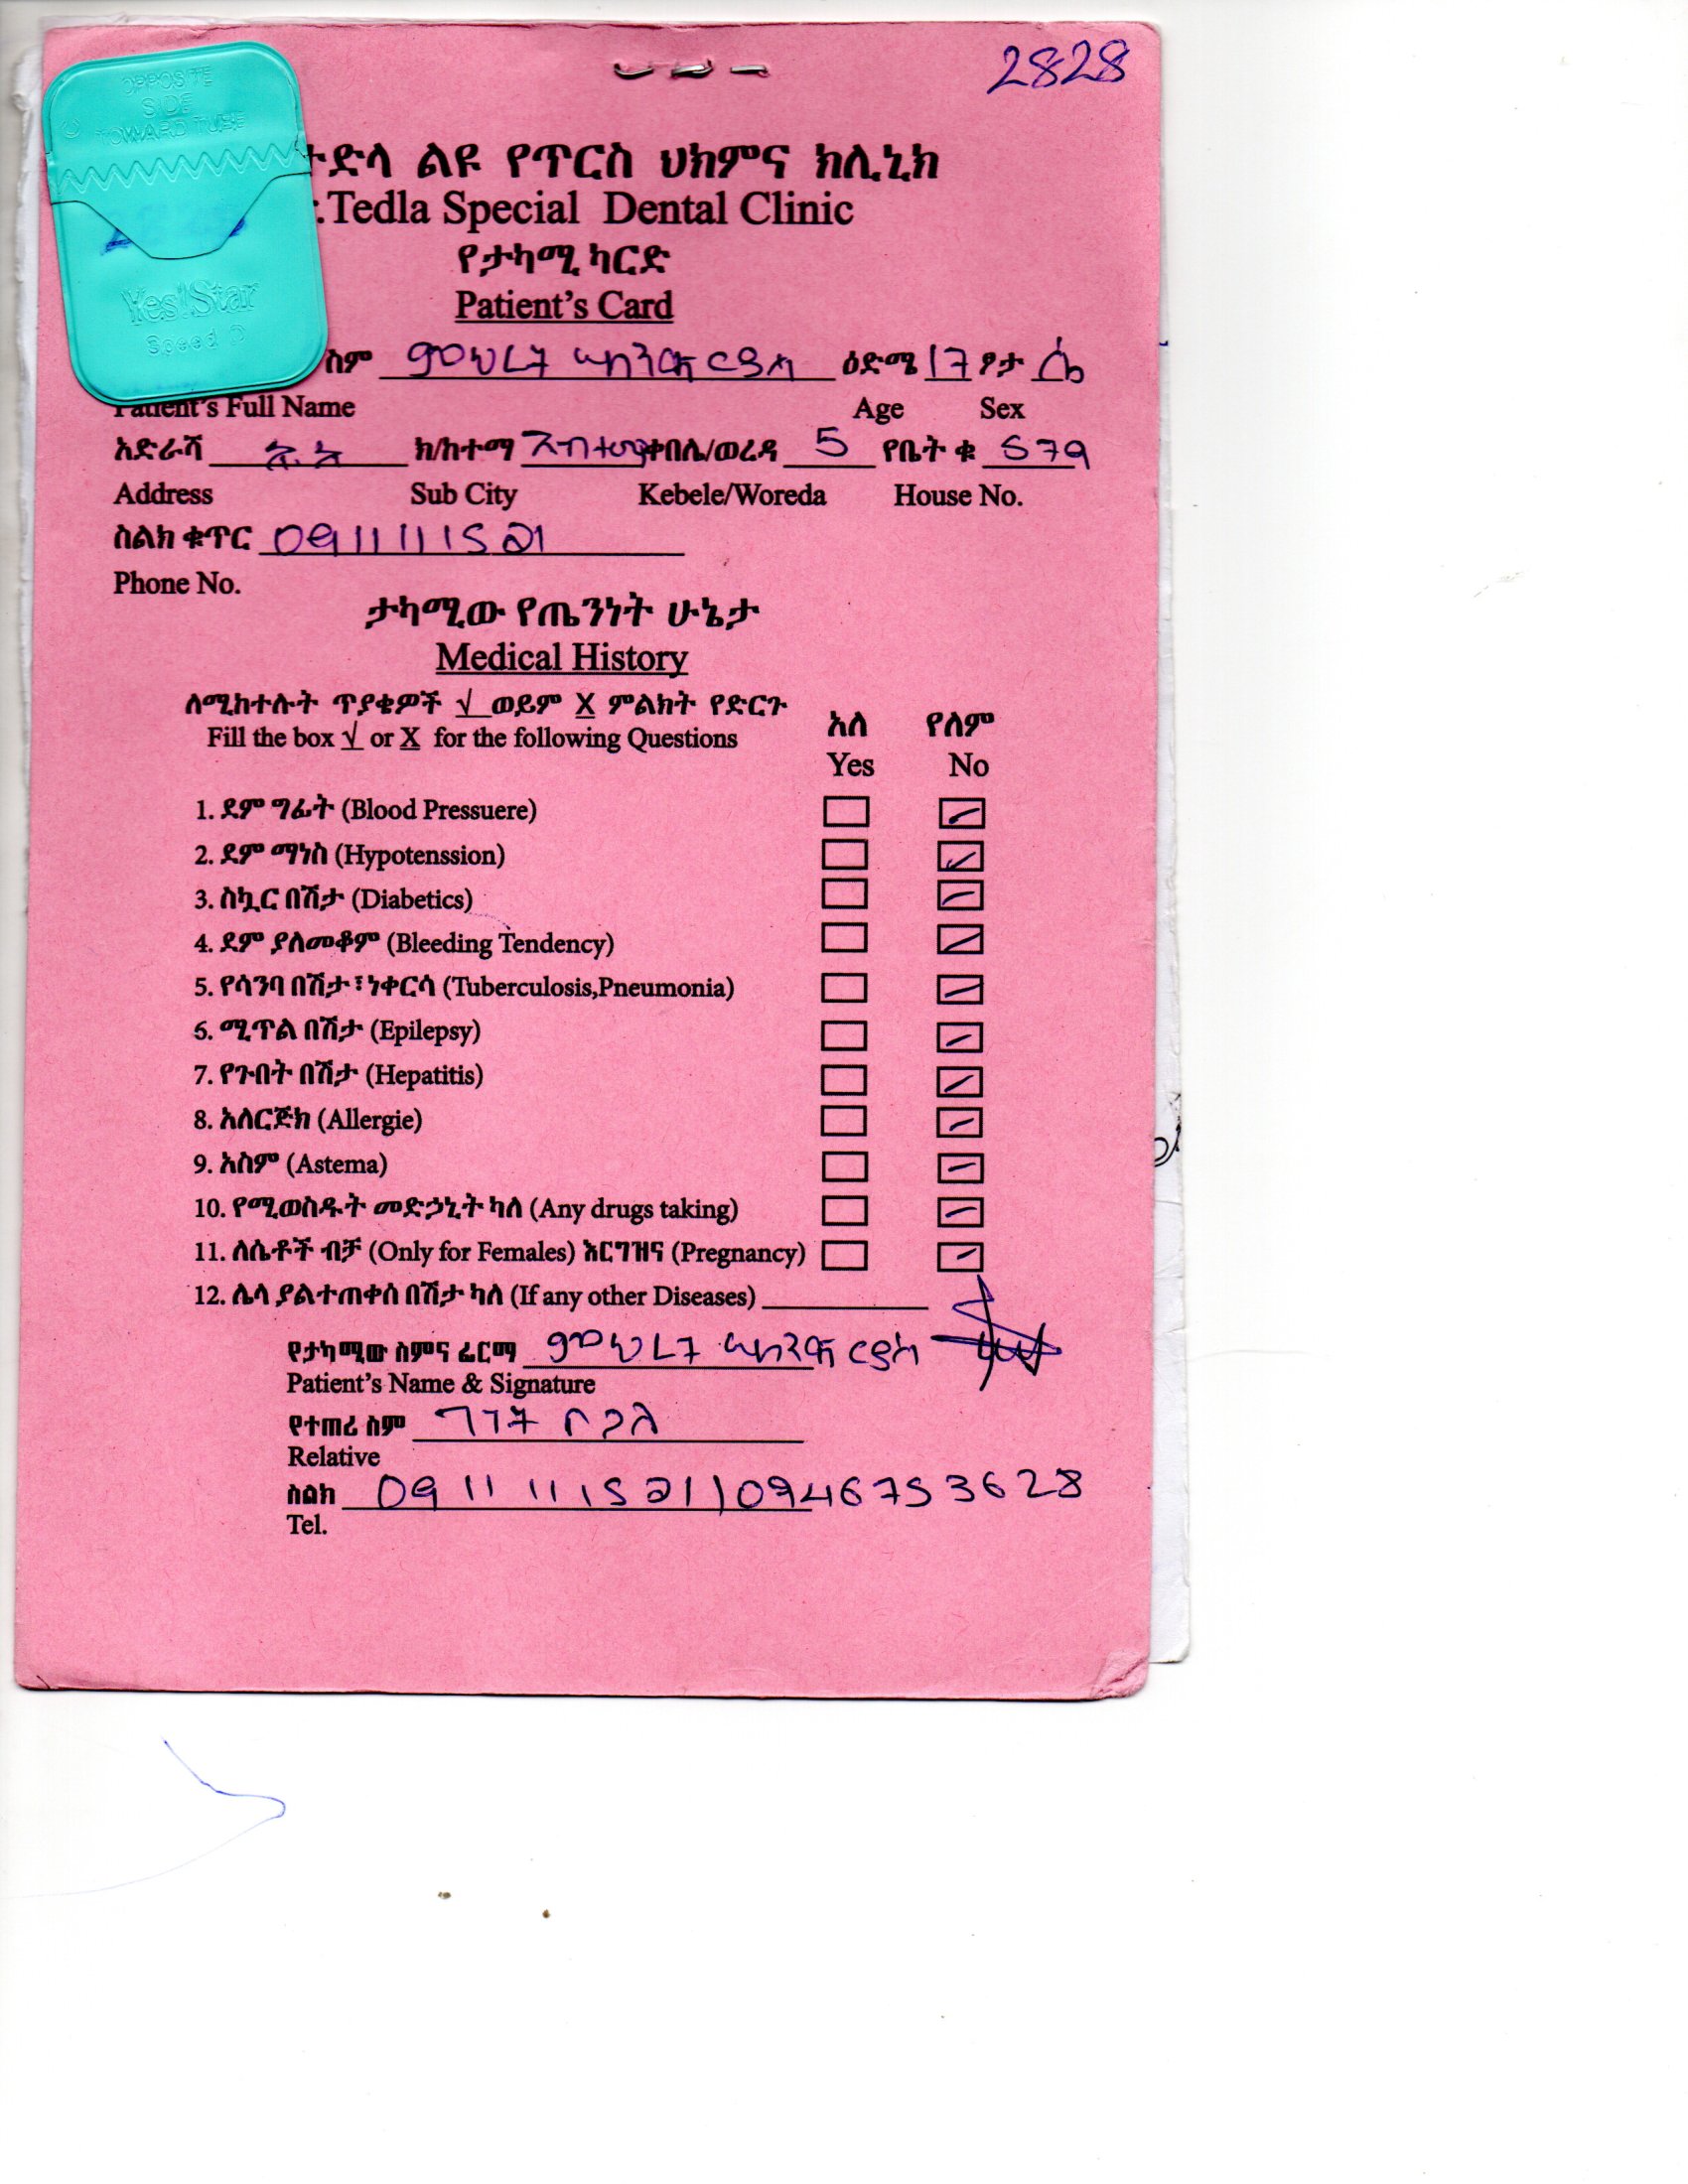 2828
OPPOSITE
SIDE
TOWARD TUBE
Yes!Star
Speed D
ተድላ ልዩ የጥርስ ህክምና ክሊኒክ
.Tedla Special Dental Clinic
የታካሚ ካርድ
Patient's Card
ስም ምህረት ዕድሜ 17 ፆታ ሴ
Patient's Full Name Age Sex
አድራሻ አ.አ ክ/ከተማ ቀበሌ/ወረዳ 5 የቤት ቁ 579
Address Sub City Kebele/Woreda House No.
ስልክ ቁጥር 0911111521
Phone No.
ታካሚው የጤንነት ሁኔታ
Medical History
ለሚከተሉት ጥያቄዎች √ ወይም X ምልክት የድርጉ
Fill the box √ or X for the following Questions
አለ የለም
Yes No
1. ደም ግፊት (Blood Pressuere)
2. ደም ማነስ (Hypotenssion)
3. ስኳር በሽታ (Diabetics)
4. ደም ያለመቆም (Bleeding Tendency)
5. የሳንባ በሽታ፣ነቀርሳ (Tuberculosis,Pneumonia)
6. ሚጥል በሽታ (Epilepsy)
7. የጉበት በሽታ (Hepatitis)
8. አለርጅክ (Allergie)
9. አስም (Astema)
10. የሚወስዱት መድኃኒት ካለ (Any drugs taking)
11. ለሴቶች ብቻ (Only for Females) እርግዝና (Pregnancy)
12. ሌላ ያልተጠቀሰ በሽታ ካለ (If any other Diseases)
የታካሚው ስምና ፊርማ ምህረት
Patient's Name & Signature
የተጠሪ ስም
Relative
ስልክ 0911111521/0946753628
Tel.